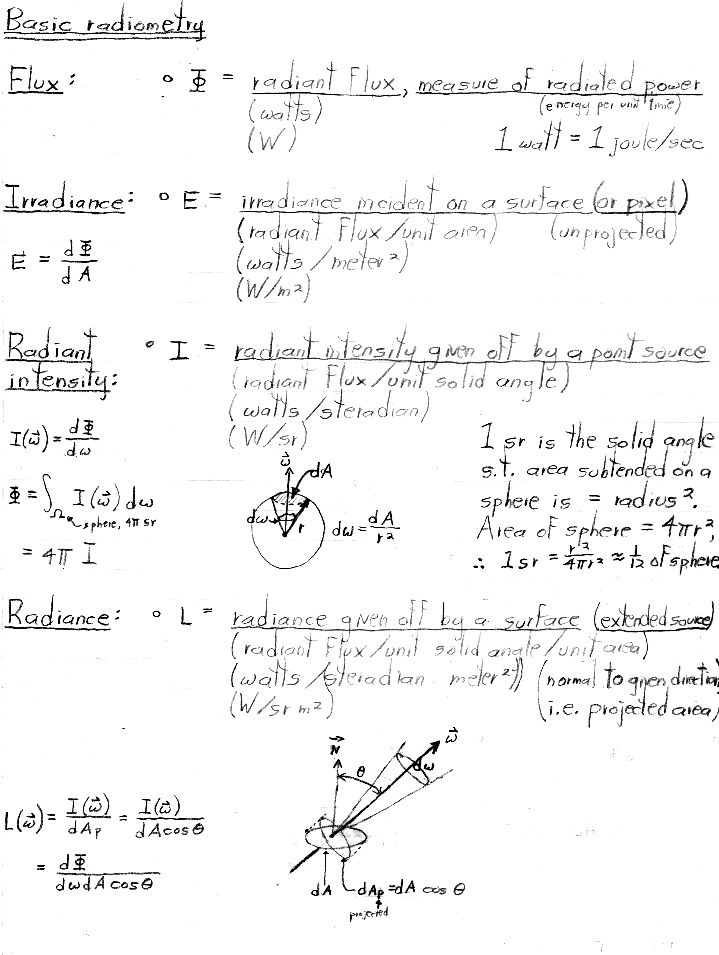 Basic radiometry
Flux: ∘ Φ = radiant flux, measure of radiated power
(watts) (energy per unit time)
(W) 1 watt = 1 joule/sec
Irradiance: ∘ E = irradiance incident on a surface (or pixel)
(radiant flux/unit area) (unprojected)
E = dΦ/dA (watts/meter²)
(W/m²)
Radiant ∘ I = radiant intensity given off by a point source
intensity: (radiant flux/unit solid angle)
(watts/steradian)
I(ω⃗) = dΦ/dω (W/sr)
1 sr is the solid angle
s.t. area subtended on a
sphere is = radius².
Area of sphere = 4πr²,
∴ 1 sr = r²/4πr² ≈ 1/12 of sphere
Φ = ∫_Ω I(ω⃗) dω
sphere, 4π sr
= 4π I
ω⃗
dA
dω
r
dω = dA/r²
Radiance: ∘ L = radiance given off by a surface (extended source)
(radiant flux/unit solid angle/unit area)
(watts/steradian meter²) (normal to given direction,
(W/sr m²) i.e. projected area)
N⃗
θ
dω
ω⃗
L(ω⃗) = I(ω⃗)/dAp = I(ω⃗)/dA cosθ
= dΦ/dω dA cosθ
dA
dAp = dA cos θ
projected